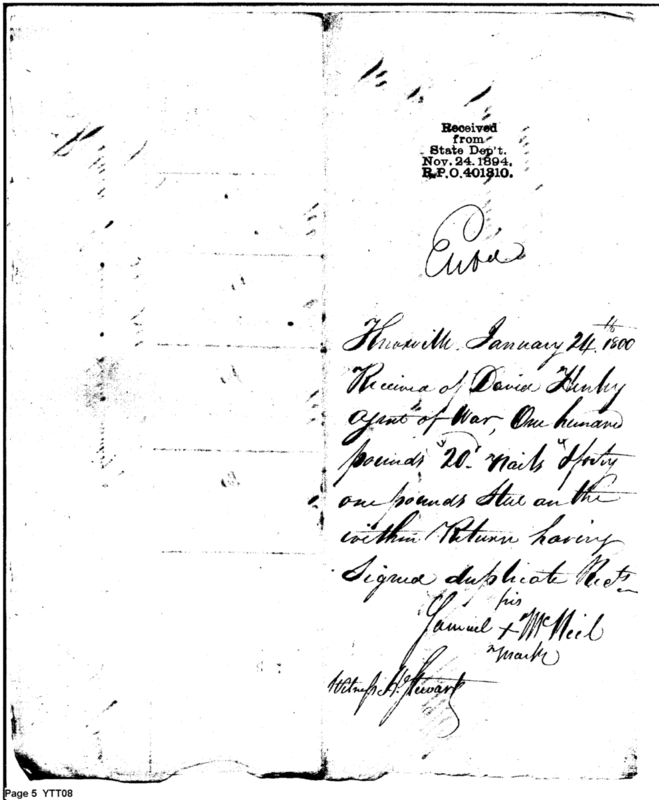 Received
from
State Dep't.
Nov. 24. 1894.
R.P.O. 401310.
Knoxville. January 24th 1800
Received of David Henly
agent of War, One hundred
pounds "20d Nails" & forty
one pounds Steel on the
within Return having
Signed duplicate Rects
his
Samuel + McNeil
mark
Witness Stewart
Page 5 YTT08